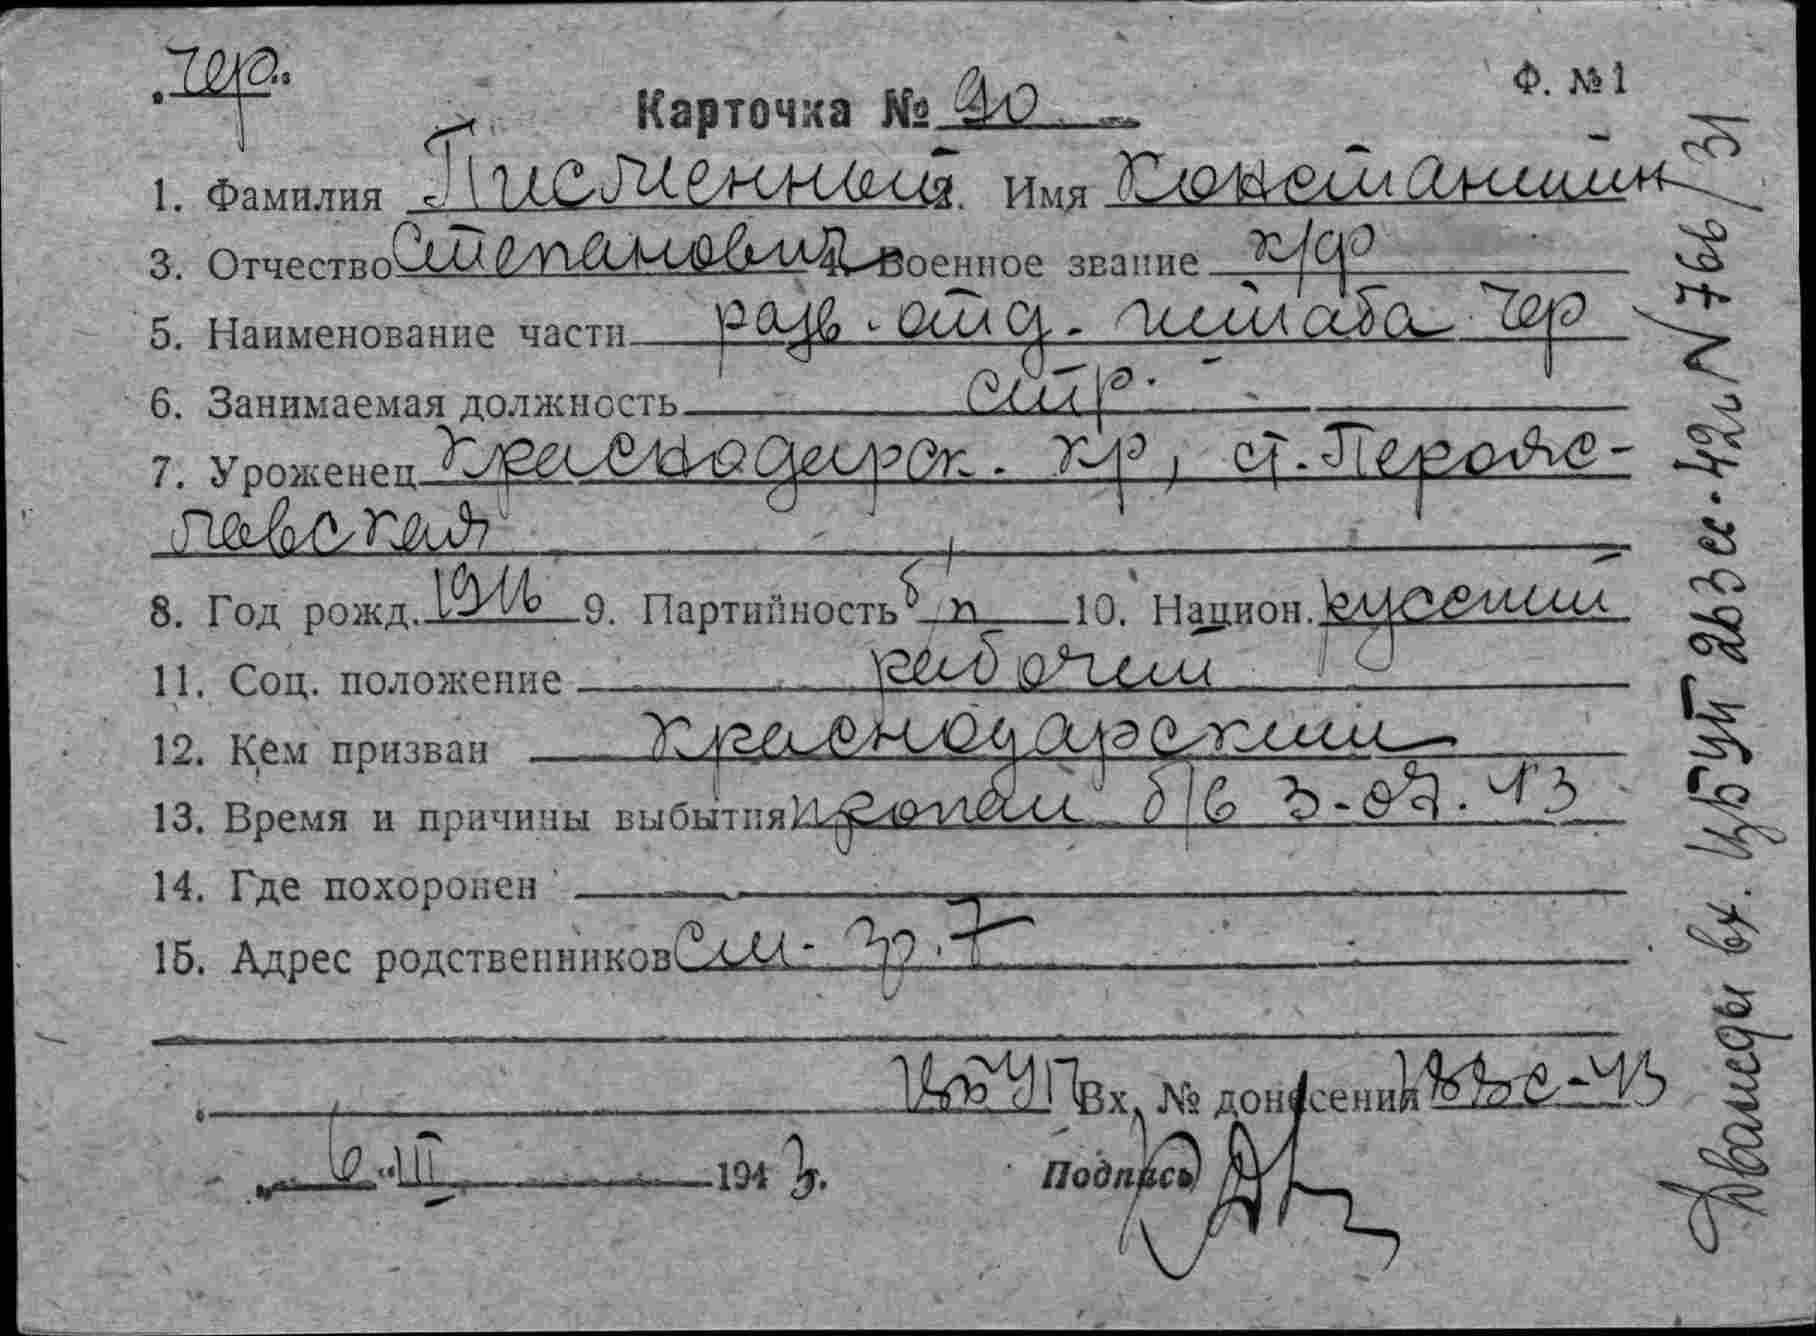 „Чер."
Ф. №1
Карточка № 90
1. Фамилия Писменный 2. Имя Константин
3. Отчество Степанович 4. Военное звание к/ф
5. Наименование части разв. отд. штаба Чер
6. Занимаемая должность стр.
7. Уроженец Краснодарск. кр, ст. Перояс-
лавская
8. Год рожд. 1916 9. Партийность б/п 10. Национ. русский
11. Соц. положение рабочий
12. Кем призван Краснодарский
13. Время и причины выбытия пропал б/в 3-02.43
14. Где похоронен
15. Адрес родственников См. гр. 7
ЦБУП Вх. № донесения 188с-43
„6" III 1943 г.
Подпись
Дважды вх. ЦБУП 263сс-42г N766/31